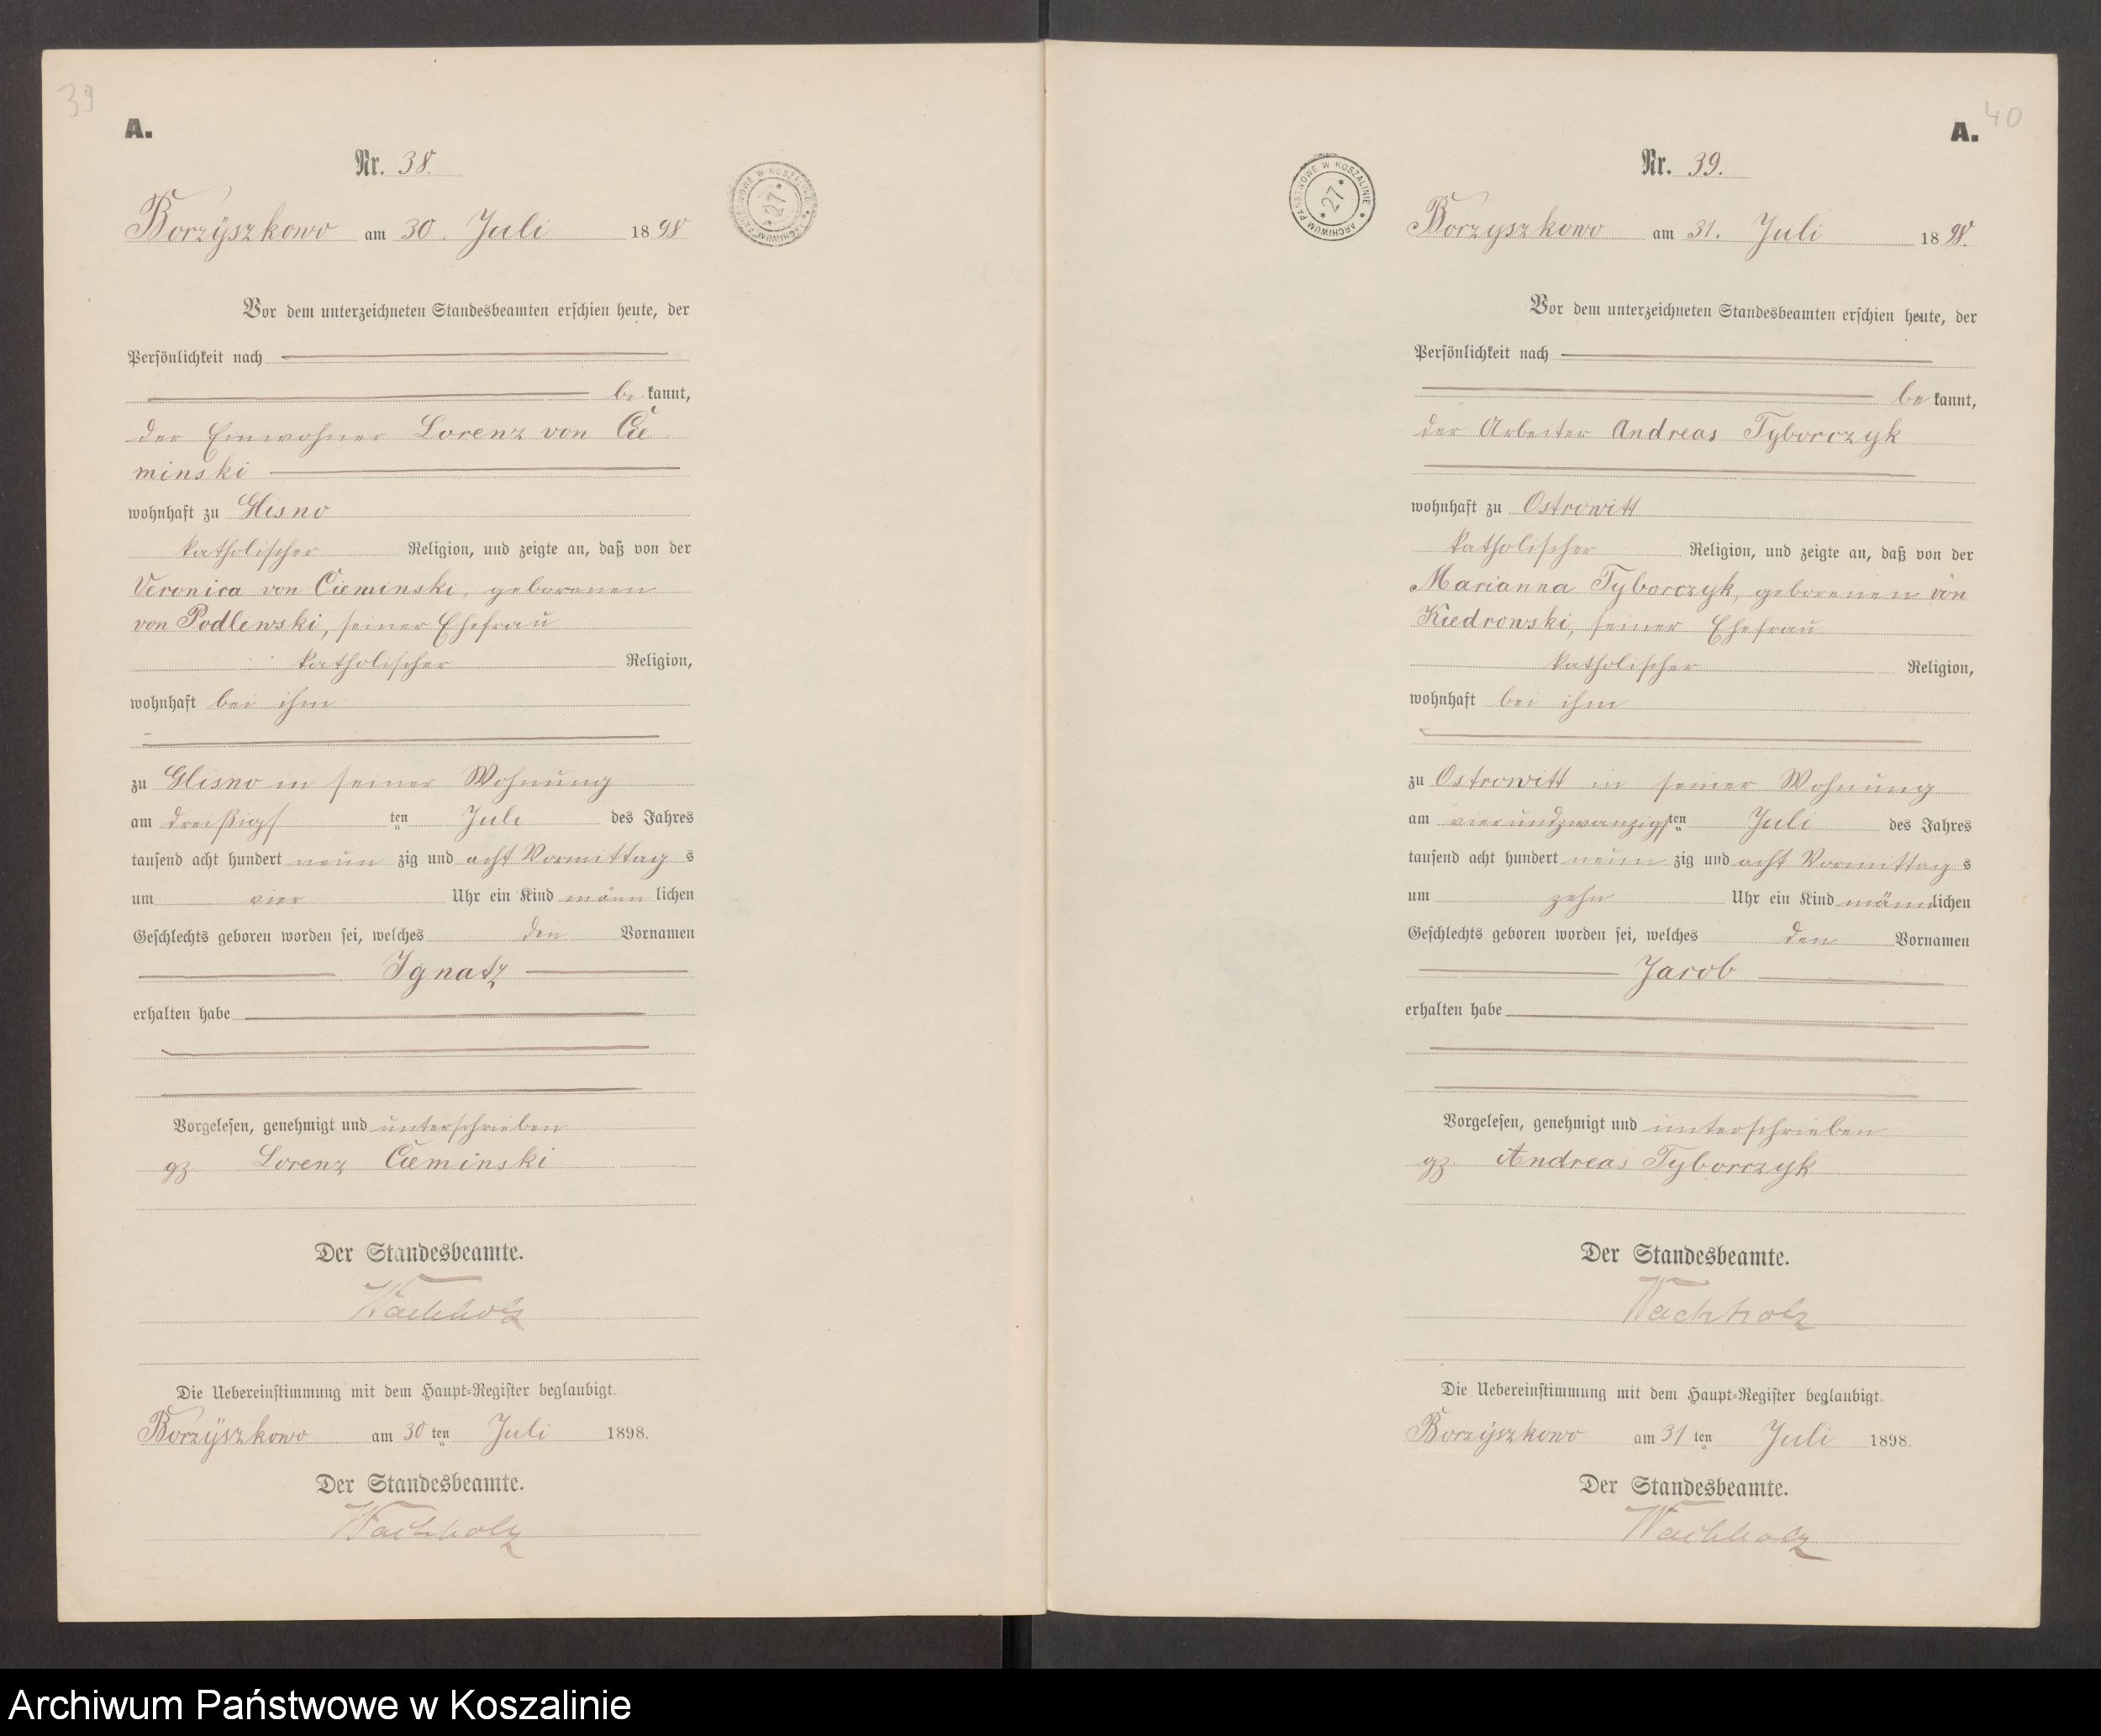 39
A.
Nr. 38.
Borzÿszkowo am 30. Juli 1898
ARCHIWUM PAŃSTWOWE W KOSZALINIE * 27 *
Vor dem unterzeichneten Standesbeamten erschien heute, der
Persönlichkeit nach
be kannt,
der Einwohner Lorenz von Cie
minski
wohnhaft zu Glisno
katholischer Religion, und zeigte an, daß von der
Veronica von Cieminski, geborenen
von Podlewski, seiner Ehefrau
katholischer Religion,
wohnhaft bei ihm
zu Glisno in seiner Wohnung
am dreißigs ten Juli des Jahres
tausend acht hundert neun zig und acht Vormittag s
um vier Uhr ein Kind männ lichen
Geschlechts geboren worden sei, welches den Vornamen
Ignatz
erhalten habe
Vorgelesen, genehmigt und unterschrieben
gz. Lorenz Cieminski
Der Standesbeamte.
Wachholz
Die Uebereinstimmung mit dem Haupt-Register beglaubigt.
Borzÿszkowo am 30 ten Juli 1898.
Der Standesbeamte.
Wachholz
40
A.
Nr. 39.
ARCHIWUM PAŃSTWOWE W KOSZALINIE * 27 *
Borzyszkowo am 31. Juli 1898.
Vor dem unterzeichneten Standesbeamten erschien heute, der
Persönlichkeit nach
be kannt,
der Arbeiter Andreas Tyborczyk
wohnhaft zu Ostrowitt
katholischer Religion, und zeigte an, daß von der
Marianna Tyborczyk, geborenen von
Kiedrowski, seiner Ehefrau
katholischer Religion,
wohnhaft bei ihm
zu Ostrowitt in seiner Wohnung
am vierundzwanzigs ten Juli des Jahres
tausend acht hundert neun zig und acht Vormittag s
um zehn Uhr ein Kind männ lichen
Geschlechts geboren worden sei, welches den Vornamen
Jacob
erhalten habe
Vorgelesen, genehmigt und unterschrieben
gz. Andreas Tyborczyk
Der Standesbeamte.
Wachholz
Die Uebereinstimmung mit dem Haupt-Register beglaubigt.
Borzÿszkowo am 31 ten Juli 1898.
Der Standesbeamte.
Wachholz
Archiwum Państwowe w Koszalinie